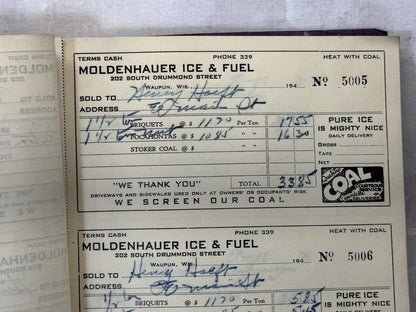 TERMS CASH PHONE 339 HEAT WITH COAL
MOLDENHAUER ICE & FUEL
202 SOUTH DRUMMOND STREET
WAUPUN, WIS., 194 No 5005
SOLD TO Henry Hoeft
ADDRESS E Main St
1 1/2 BRIQUETS @ $ 11.70 Per Ton 17 55
1 1/2 POCAHONTAS @ $ 10.85 " " 16 30
STOKER COAL @ $ " "
PURE ICE
IS MIGHTY NICE
DAILY DELIVERY
GROSS
TARE
NET
"WE THANK YOU" TOTAL 33 85
DRIVEWAYS AND SIDEWALKS USED ONLY AT OWNERS' OR OCCUPANTS' RISK
WE SCREEN OUR COAL
COAL
COURTEOUS
SERVICE
TERMS CASH PHONE 339 HEAT WITH COAL
MOLDENHAUER ICE & FUEL
202 SOUTH DRUMMOND STREET
WAUPUN, WIS., 194 No 5006
SOLD TO Henry Hoeft
ADDRESS E Main St
1/2 BRIQUETS @ $ 11.70 Per Ton 5 85
PURE ICE
IS MIGHTY NICE
DAILY DELIVERY
TERMS CASH
MOLDENH
SOLD TO
ADDRESS